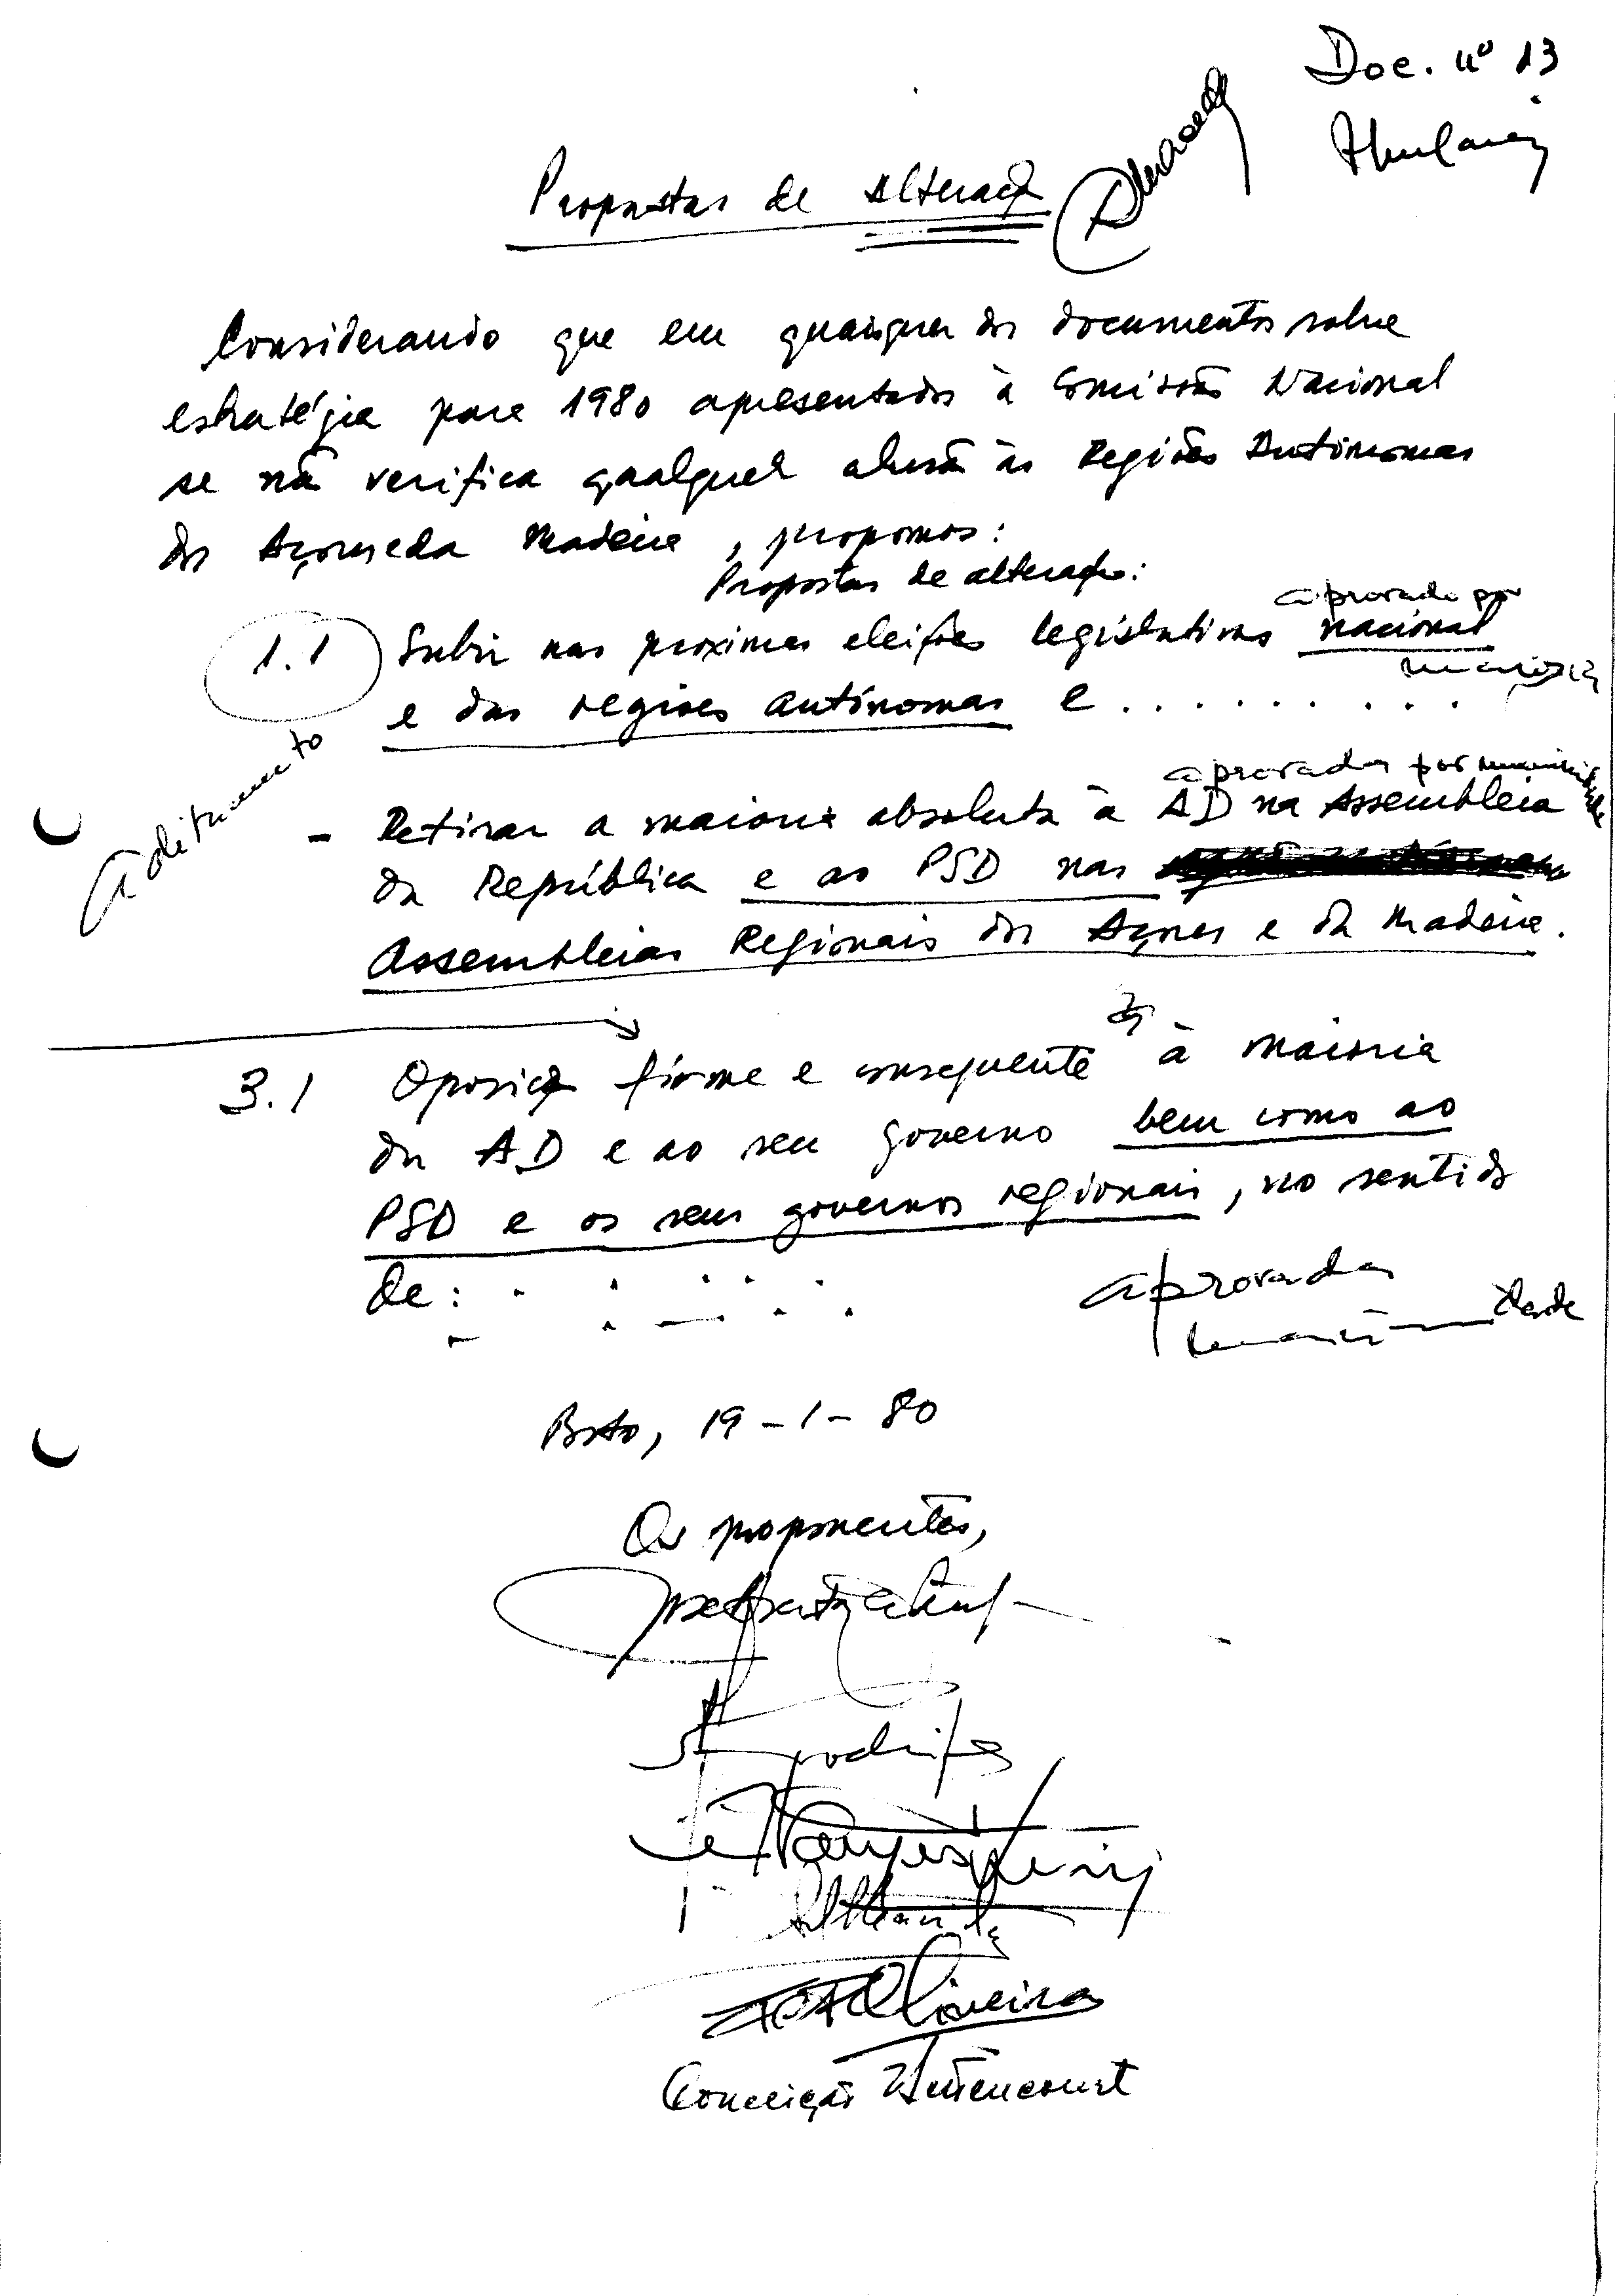 Doc. nº 13
Propostas de Alteração
Considerando que em quaisquer dos documentos sobre
estratégia para 1980 apresentados à Comissão Nacional
se não verifica qualquer alusão às Regiões Autónomas
dos Açores e da Madeira, propomos:
Propostas de alteração:
aprovado por
1.1 Subir nas próximas eleições legislativas nacional
maioria
e das regiões autónomas e . . . . . . . . . .
Aditamento
aprovada por unanimidade
- Retirar a maioria absoluta à AD na Assembleia
da República e ao PSD nas
Assembleias Regionais dos Açores e da Madeira.
3.1 Oposição firme e consequente à maioria
da AD e ao seu governo bem como ao
PSD e os seus governos regionais, no sentido
de:
aprovada
Porto, 19-1-80
Os proponentes,
Oliveira
Conceição Bettencourt